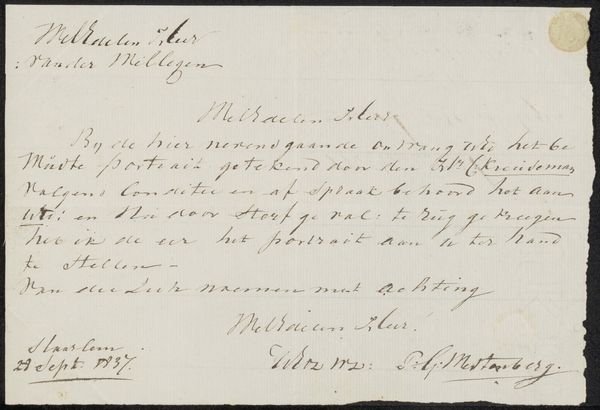 WelEdelen Heer
van der Willegen
WelEdelen Heer
By de hier nevensgaande ontvang UEd het be
Wüste portrait getekend door den Hr C. Kruseman
Volgens Conditie en af Spraak behoord het aan
en Nu door Sterf geval: te rüg ge kreegen
heb ik de eer het portrait aan u ter hand
te Stellen –
Van die Eer noemen met achting
WelEdelen Heer.
UEd
Haarlem
28 Sept. 1837.